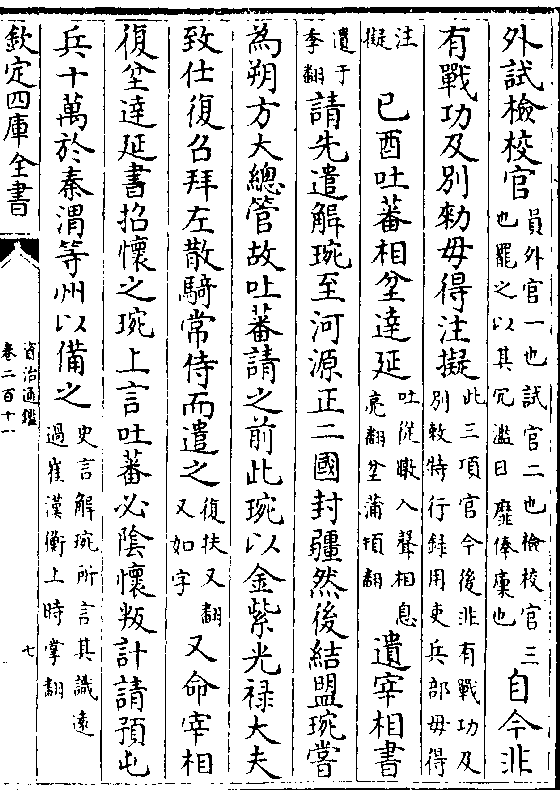 外試檢校官員外官一也試官二也檢校官三也罷之以其冗濫日靡俸廩也自今非
有戰功及別勑毋得注擬此三項官今後非有戰功及別敕特行録用吏兵部毋得
注擬己酉吐蕃相坌達延吐從暾入聲相息亮翻坌蒲頓翻遺宰相書
遺于季翻請先遣解琬至河源正二國封疆然後結盟琬嘗
為朔方大總管故吐蕃請之前此琬以金紫光禄大夫
致仕復召拜左散騎常侍而遣之復扶又翻又如字又命宰相
復坌達延書招懷之琬上言吐蕃必陰懷叛計請預屯
兵十萬於秦渭等州以備之史言解琬所言其識遠過崔漢衡上時掌翻
欽定四庫全書
資治通鑑
卷二百十一
七